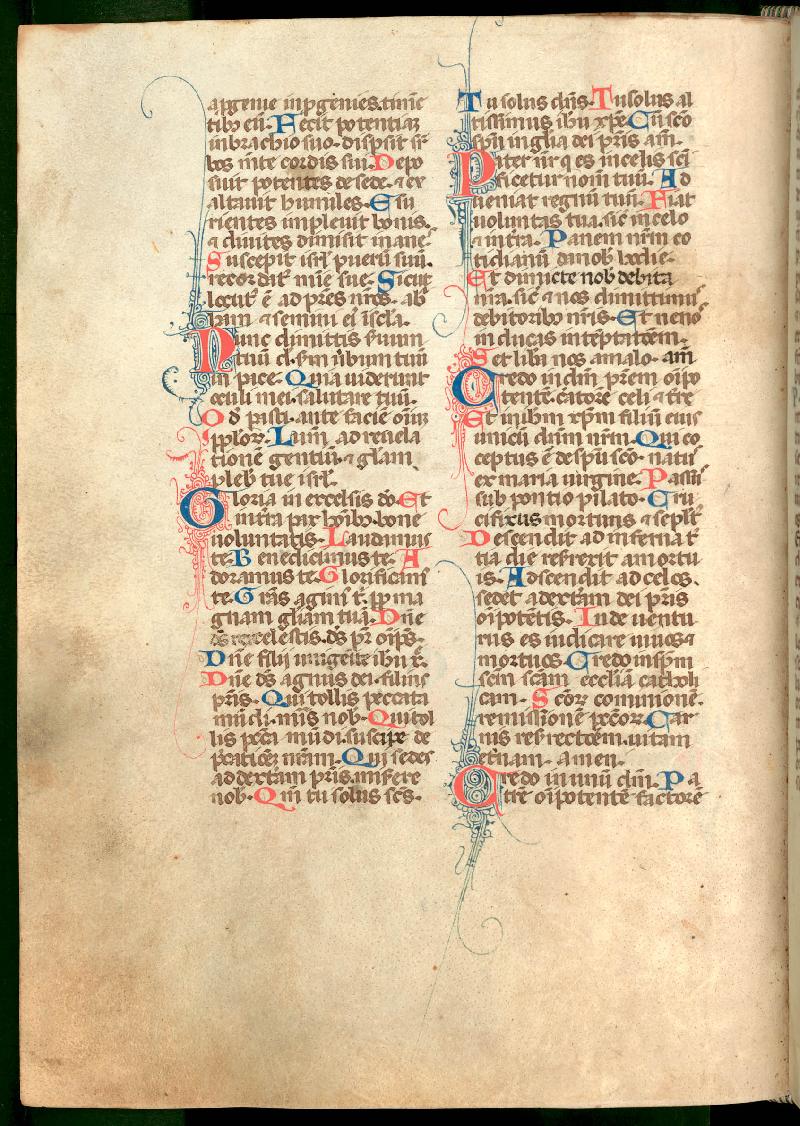 a progenie in p̱genies. timētie
tibꝫ eū. Fecit potentiaꝫ
in brachio suo. dispsit sr̄
bos mīte cordis sui. Depo
suit potentes de sede. ⁊ ex
altauit humiles. Esu
rientes impleuit bonis.
⁊ diuites dimisit inanes.
Suscepit isrl̄ puerū suū.
recordatꝰ mīe sue. Sicut
locutꝰ ē ad pr̄es nr̄os. ab
ham ⁊ semini eiꝰ ī scl̄a.
Nunc dimittis ẜuum
tuū dn̄e ẜm ūbum tuū
in pace. Quia uiderunt
oculi mei. salutare tuū.
Qd̄ pasti. ante faciē oīuꝫ
ppl̄oꝝ. Lum̄ ad reuela
tionē gentiū. ⁊ gl̄iam
plebꝰ tue isrl̄.
Gloria in excelsis dō. Et
in t̄ra pax hōibꝫ bone
uoluntatis. Laudamus
te. Benedicimus te. A
doramus te. Glorificamꝰ
te. Grās agimꝰ t̄. pp̄ ma
gnam gl̄iam tuā. Dn̄e
ds̄ rex celestis. ds̄ pr̄ oīps.
Dn̄e filij unigenite ihū x̄.
Dn̄e ds̄ agnus dei. filius
pr̄is. Qui tollis peccata
mūdi. mis̄. nob. Qui tol
lis pcc̄a mūdi. suscipe de
p̱caticēꝫ nr̄am. Qui sedes
ad dextam pr̄is. misere
nob. Qm̄ tu solus scs̄.
Tu solus dn̄s. Tu solus al
tissimus ihū xp̄e. Cū sc̄o
sp̄ū in gl̄ia dei pr̄is. am̄.
Pater nr̄ q es in celis sc̄i
ficetur nom̄ tuū. Ad
ueniat regnū tuū. Fiat
uoluntas tua. sic̄ in celo
⁊ in t̄ra. Panem nr̄m co
tidianū da nob hodie.
Et dimicte nob debita
nr̄a. sic̄ ⁊ nos dimittimus
debitoribꝫ nr̄is. Et ne nos
inducas in tēptatōem.
Set libā nos a malo. am̄
Credo in dm̄ pr̄em oīpo
tentē. c̄atorē celi ⁊ t̄re
Et in ihm xp̄m filiū eius
unicū dn̄m nr̄m. Qui cō
ceptus ē de sp̄u sc̄o. natꝰ
ex maria uirgine. Passꝰ
sub pontio pilato. Cru
cifixus mortuus ⁊ sepltꝰ
Descendit ad inferna t̄
tia die resrexit a mortu
is. Adscendit ad celos.
sedet a dextam dei pr̄is
oīpotētis. Inde uentu
rus es iudicare uiuos ⁊
mortuos. Credo in sp̄m
sc̄m sc̄am ecclīa catholi
cam. Sc̄oꝝ comunionē.
remissionē pcc̄oꝝ. Car
nis resrectōem. uitam
etnam. amen.
Credo in unū dm̄. Pa
trē oīpotentē factorē